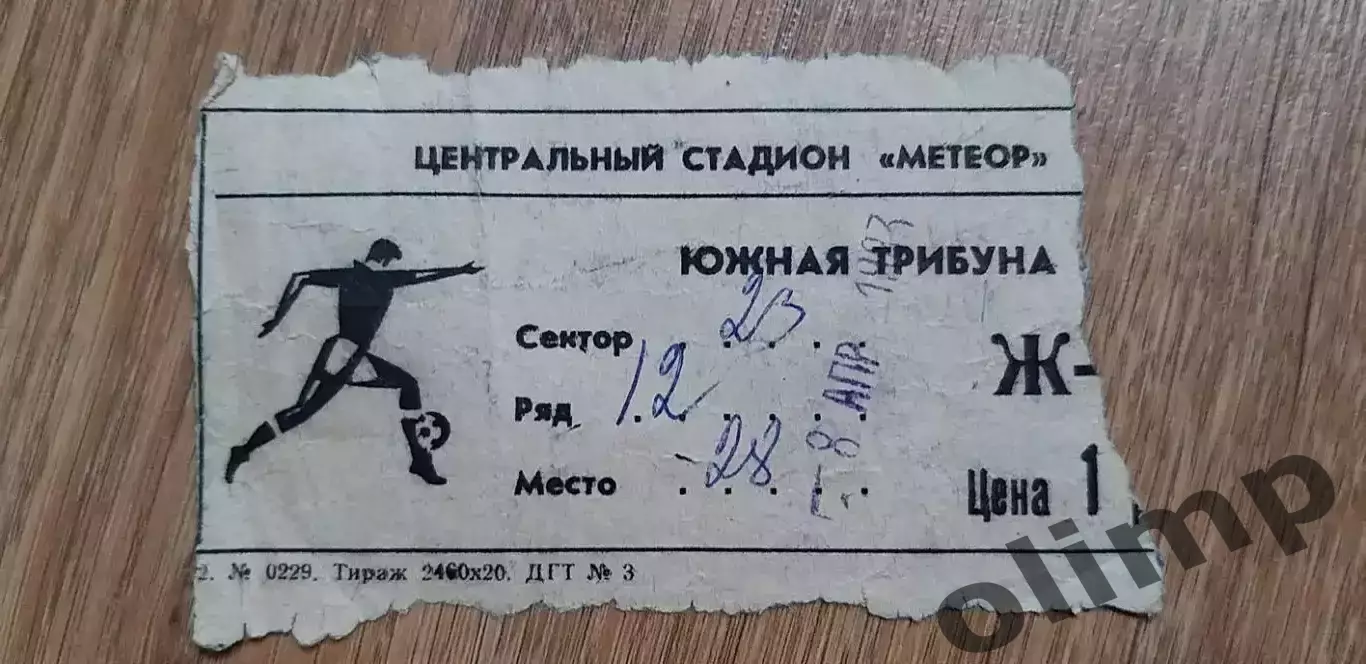 ЦЕНТРАЛЬНЫЙ СТАДИОН «МЕТЕОР»
ЮЖНАЯ ТРИБУНА
Сектор 23
Ряд 12
Место 28
Ж-
Цена 1
8 АПР 1993
2. № 0229. Тираж 2460х20. ДГТ № 3
olimp